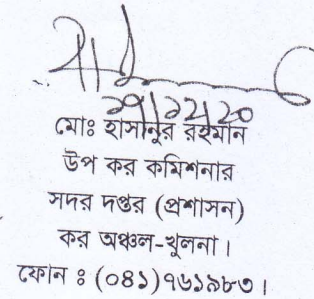 ২৭/১২/২০
মোঃ হাসানুর রহমান
উপ কর কমিশনার
সদর দপ্তর (প্রশাসন)
কর অঞ্চল-খুলনা।
ফোন ঃ (০৪১)৭৬১৯৮৩।